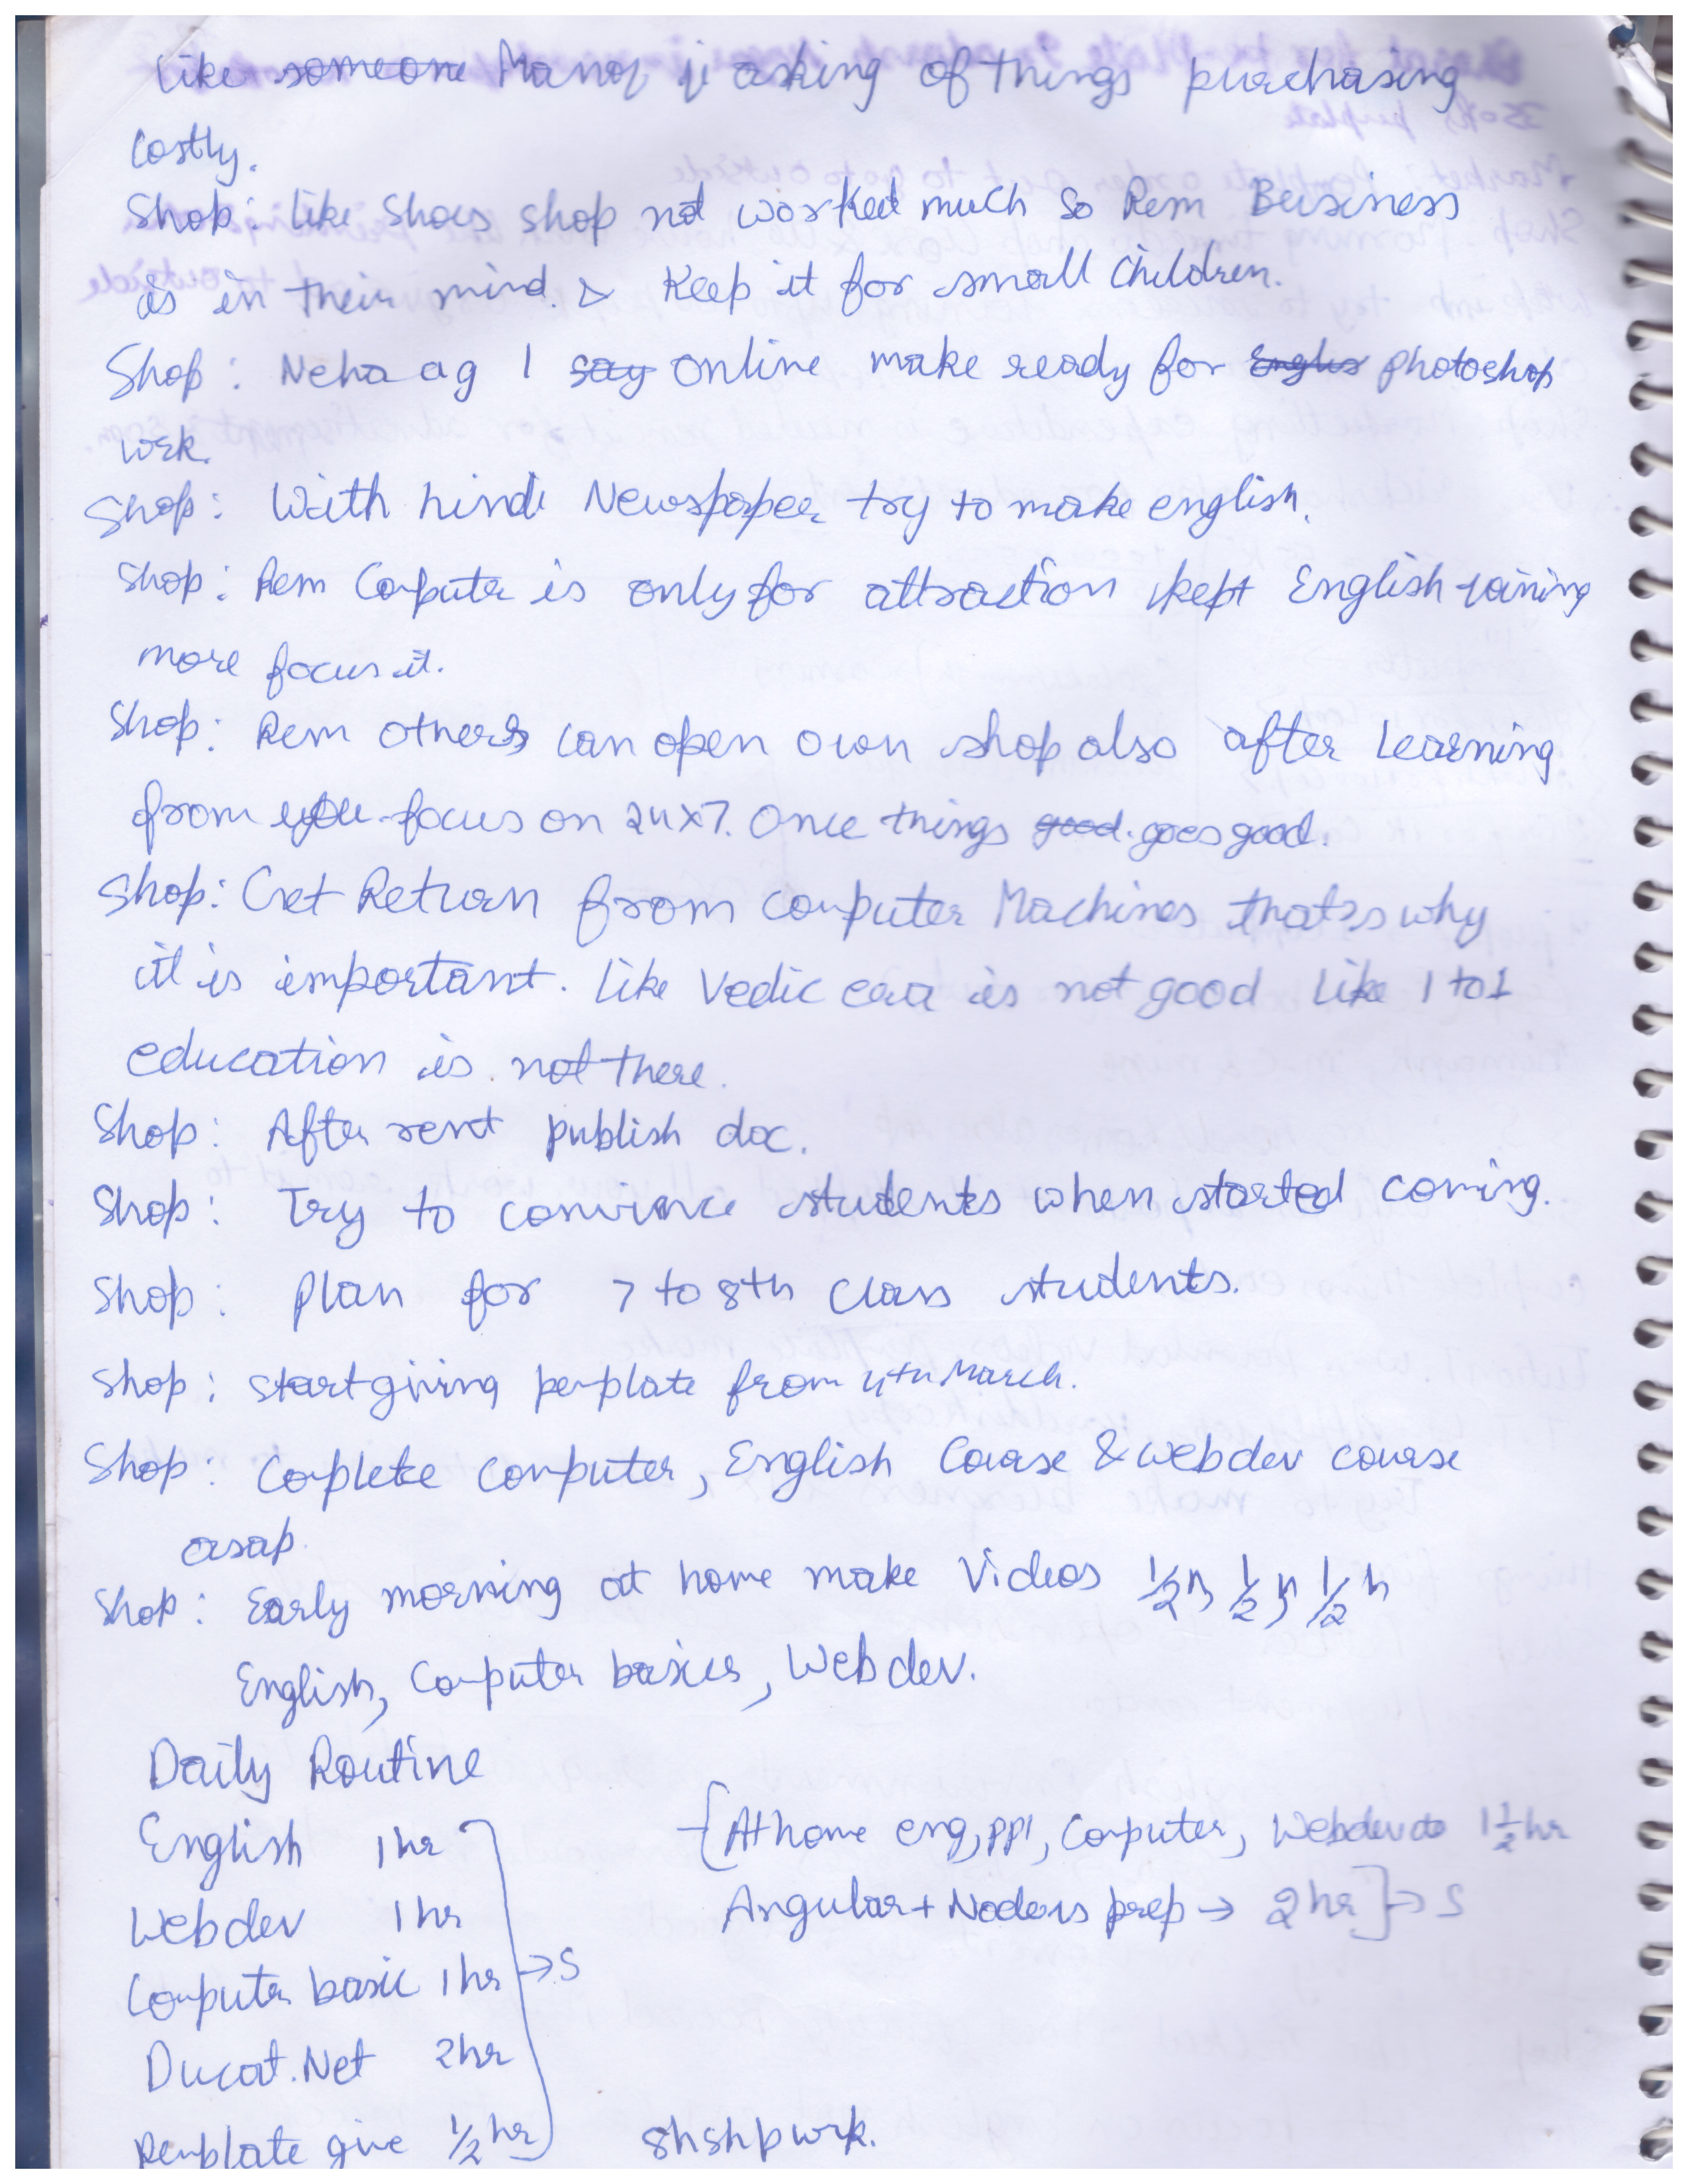 Like someone Manoj ji asking of things purchasing
costly.
Shop: like shoes shop not worked much so Rem Business
is in their mind. & Keep it for small children.
Shop: Neha ag 1 say online make ready for englis photoshop
work.
Shop: With hindi Newspaper try to make english.
Shop: Rem Coputer is only for attraction kept English training
more focus it.
Shop: Rem others can open own shop also after learning
from you focus on 24x7. Once things good. goes good.
Shop: Get Return from computer Machines that's why
it is important. Like Vedic era is not good Like 1 to 1
education is not there.
Shop: After rent publish doc.
Shop: Try to convince students when started coming.
Shop: plan for 7 to 8th class students.
Shop: start giving pemplate from 4th March.
Shop: Coplete computer, English Course & webdev course
asap.
Shop: Early morning at home make Videos 1/2h, 1/2h, 1/2h
English, Computer basics, Webdev.
Daily Routine
English 1 hr
Webdev 1 hr
Computer basic 1 hr → S
Ducat.Net 2hr
pemplate give 1/2 hr
{At home eng, PPT, Computer, Webdev do 1 1/2 hr
Angular + Nodejs prep → 2 hr] → S
8h shp work.